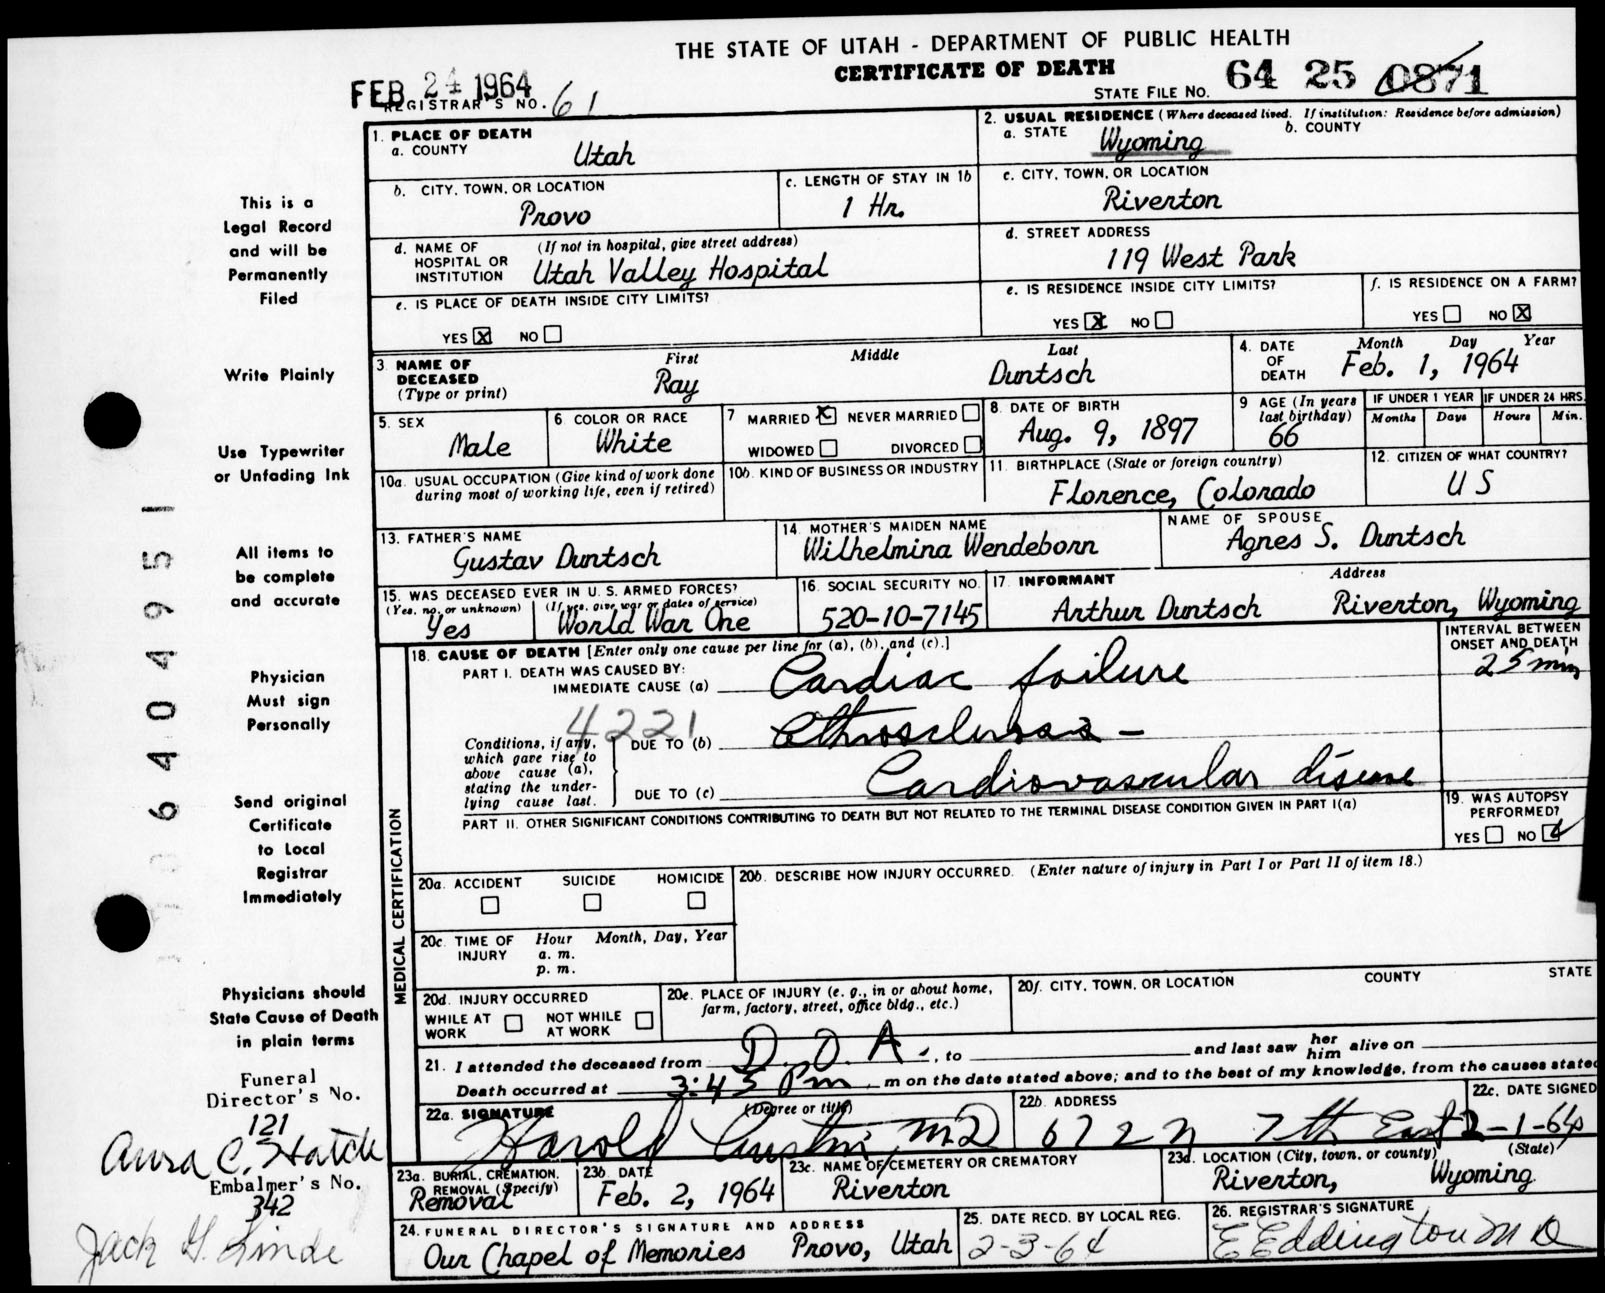 THE STATE OF UTAH - DEPARTMENT OF PUBLIC HEALTH
CERTIFICATE OF DEATH
FEB 24 1964
REGISTRAR'S NO. 61
STATE FILE NO. 64 25 0871
This is a
Legal Record
and will be
Permanently
Filed
Write Plainly
Use Typewriter
or Unfading Ink
All items to
be complete
and accurate
Physician
Must sign
Personally
Send original
Certificate
to Local
Registrar
Immediately
Physicians should
State Cause of Death
in plain terms
Funeral
Director's No.
121
Embalmer's No.
342
Jack G. Linde
1. PLACE OF DEATH
a. COUNTY Utah
2. USUAL RESIDENCE (Where deceased lived. If institution: Residence before admission)
a. STATE Wyoming b. COUNTY
b. CITY, TOWN, OR LOCATION Provo
c. LENGTH OF STAY IN 1b 1 Hr.
c. CITY, TOWN, OR LOCATION Riverton
d. NAME OF HOSPITAL OR INSTITUTION (If not in hospital, give street address) Utah Valley Hospital
d. STREET ADDRESS 119 West Park
e. IS PLACE OF DEATH INSIDE CITY LIMITS? YES X NO
e. IS RESIDENCE INSIDE CITY LIMITS? YES X NO
f. IS RESIDENCE ON A FARM? YES NO X
3. NAME OF DECEASED (Type or print) First Middle Last
Ray Duntsch
4. DATE OF DEATH Month Day Year
Feb. 1, 1964
5. SEX Male
6. COLOR OR RACE White
7 MARRIED X NEVER MARRIED
WIDOWED DIVORCED
8. DATE OF BIRTH Aug. 9, 1897
9 AGE (In years last birthday) 66
IF UNDER 1 YEAR Months Days
IF UNDER 24 HRS. Hours Min.
10a. USUAL OCCUPATION (Give kind of work done during most of working life, even if retired)
10b. KIND OF BUSINESS OR INDUSTRY
11. BIRTHPLACE (State or foreign country) Florence, Colorado
12. CITIZEN OF WHAT COUNTRY? US
13. FATHER'S NAME Gustav Duntsch
14. MOTHER'S MAIDEN NAME Wilhelmina Wendeborn
NAME OF SPOUSE Agnes S. Duntsch
15. WAS DECEASED EVER IN U. S. ARMED FORCES?
(Yes, no, or unknown) (If yes, give war or dates of service)
Yes World War One
16. SOCIAL SECURITY NO. 520-10-7145
17. INFORMANT Address
Arthur Duntsch Riverton, Wyoming
MEDICAL CERTIFICATION
18. CAUSE OF DEATH [Enter only one cause per line for (a), (b), and (c).]
INTERVAL BETWEEN ONSET AND DEATH
PART I. DEATH WAS CAUSED BY:
IMMEDIATE CAUSE (a) Cardiac failure 25 min
4221
Conditions, if any, which gave rise to above cause (a), stating the underlying cause last.
DUE TO (b)
DUE TO (c) Cardiovascular disease
PART II. OTHER SIGNIFICANT CONDITIONS CONTRIBUTING TO DEATH BUT NOT RELATED TO THE TERMINAL DISEASE CONDITION GIVEN IN PART I(a)
19. WAS AUTOPSY PERFORMED?
YES NO
20a. ACCIDENT SUICIDE HOMICIDE
20b. DESCRIBE HOW INJURY OCCURRED. (Enter nature of injury in Part I or Part II of item 18.)
20c. TIME OF INJURY Hour Month, Day, Year
a. m.
p. m.
20d. INJURY OCCURRED
WHILE AT WORK NOT WHILE AT WORK
20e. PLACE OF INJURY (e. g., in or about home, farm, factory, street, office bldg., etc.)
20f. CITY, TOWN, OR LOCATION COUNTY STATE
21. I attended the deceased from D. O. A., to and last saw her him alive on
Death occurred at 3:45 Pm m on the date stated above; and to the best of my knowledge, from the causes stated
22a. SIGNATURE (Degree or title)
Harold Austin, MD
22b. ADDRESS 672 N 7th East
22c. DATE SIGNED 2-1-64
23a. BURIAL, CREMATION, REMOVAL (Specify) Removal
23b. DATE Feb. 2, 1964
23c. NAME OF CEMETERY OR CREMATORY Riverton
23d. LOCATION (City, town, or county) (State)
Riverton, Wyoming
24. FUNERAL DIRECTOR'S SIGNATURE AND ADDRESS
Our Chapel of Memories Provo, Utah
25. DATE RECD. BY LOCAL REG. 2-3-64
26. REGISTRAR'S SIGNATURE
E Eddington MD